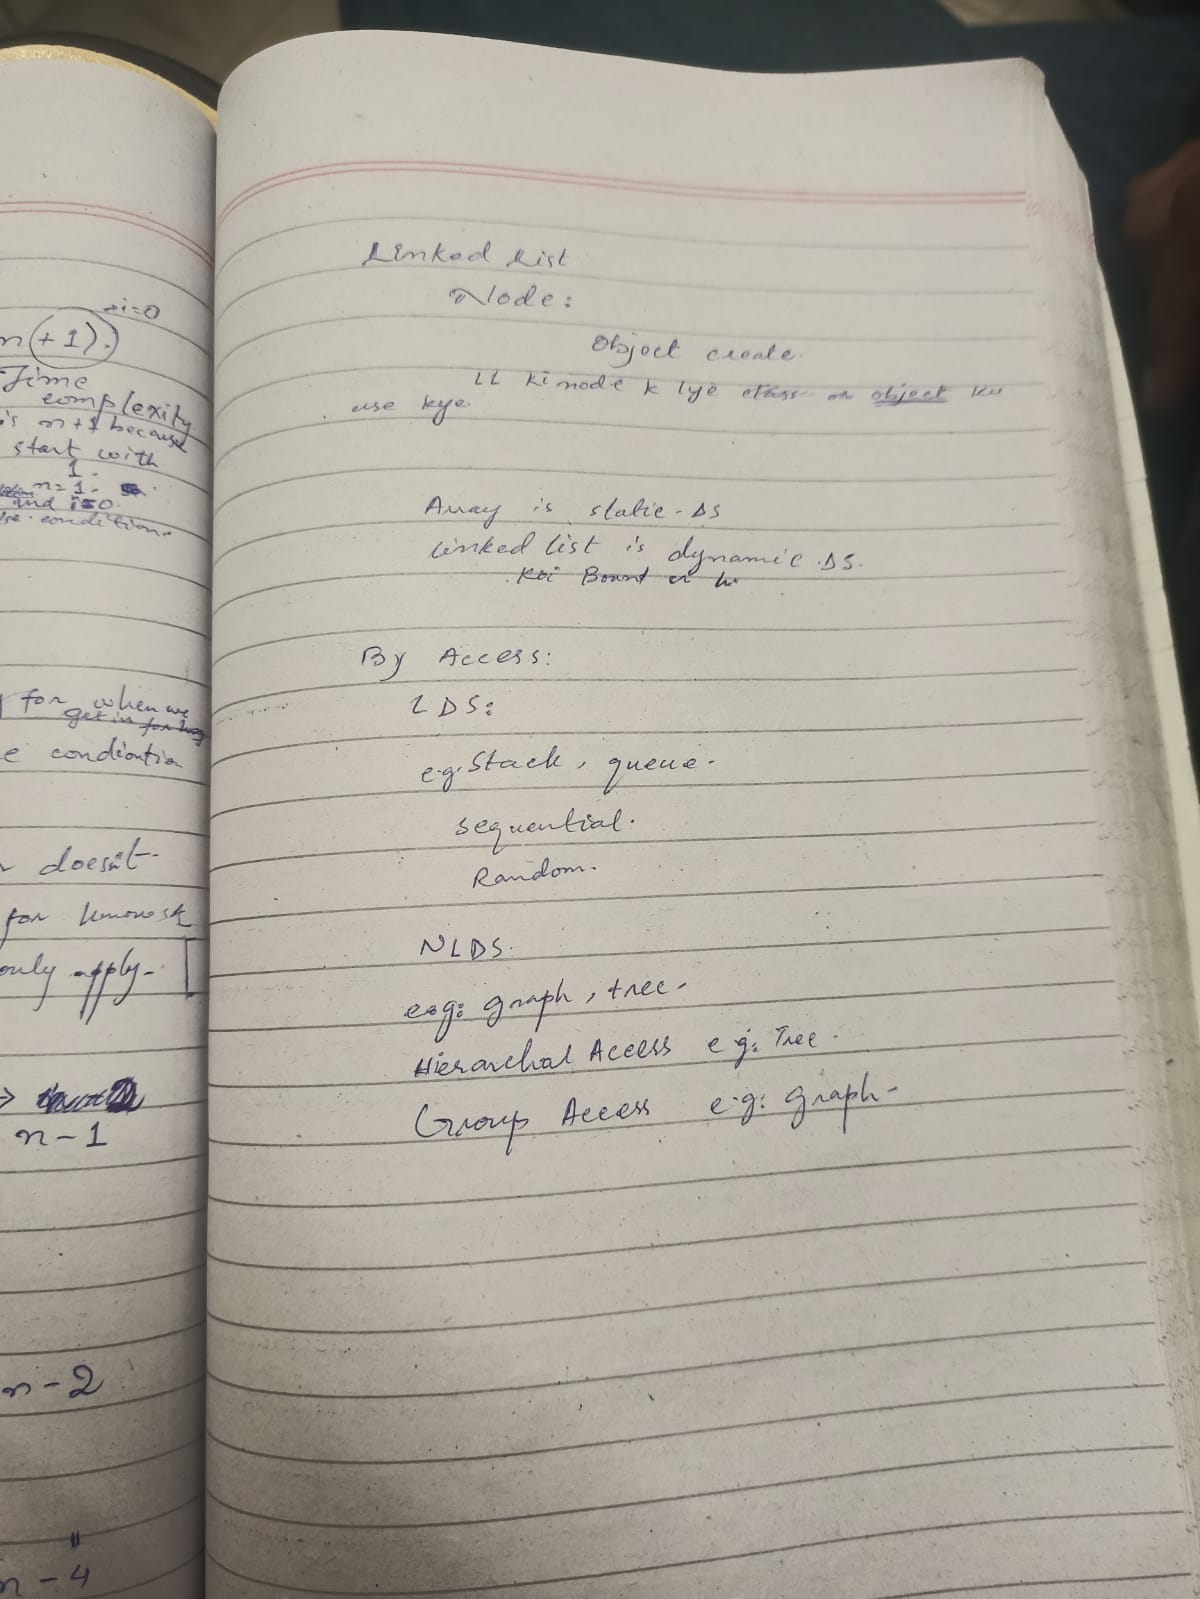 →i=0
n(+1).
Time
complexity
is n+1 because
start with
1.
n=1.
and i=0.
condition.
for when we
get in for loop
e condiontion
doesn't
for
only apply.
n-1
n-2
"
n-4
Linked List
Node:
Object create.
LL ki node k lye class or object ku
use kye
Array is static-DS
linked list is dynamic DS.
Koi
By Access:
LDS:
e.g. Stack, queue.
sequential.
Random.
NLDS.
e.g: graph, tree.
Hierarchal Access e.g: Tree.
Group Access e.g: graph-